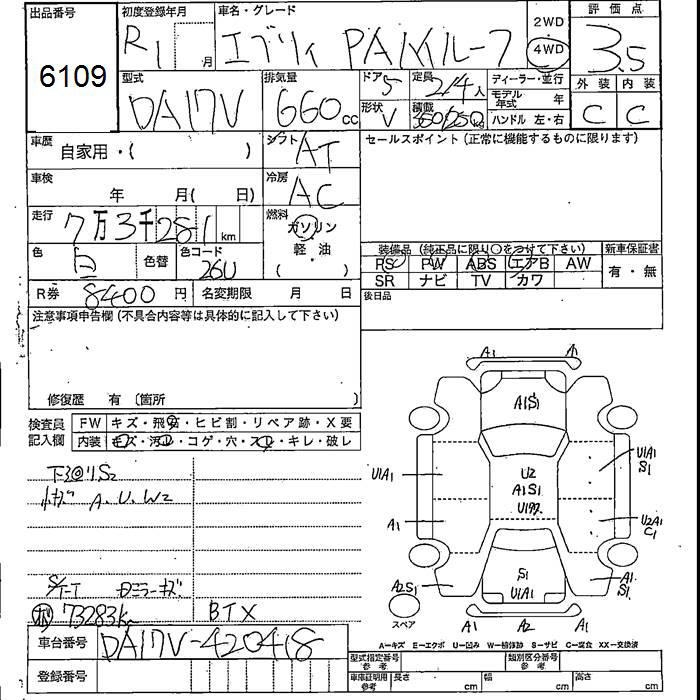 出品番号
6109
初度登録年月
R1 月
車名・グレード
エブリィ PA ハイルーフ
2WD
4WD
評価点
3.5
型式
DA17V
排気量
660 cc
ドア
5
定員
2/4人
ディーラー・並行
モデル年式 年
ハンドル 左・右
形状
V
積載
350/250kg
外装 内装
C C
車歴
自家用・( )
シフト
AT
セールスポイント(正常に機能するものに限ります)
車検
年 月( 日)
冷房
AC
走行
7万3千281km
燃料
ガソリン
軽・油
( )
色
白
色替
色コード
26U
装備品 (純正品に限り〇をつけて下さい)
新車保証書
PS PW ABS エアB AW
SR ナビ TV カワ
有・無
R券 8400円
名変期限 月 日
後日品
注意事項申告欄(不具合内容等は具体的に記入して下さい)
修復歴 有 (箇所 )
検査員記入欄
FW キズ・飛石・ヒビ割・リペア跡・X要
内装 キズ・汚れ・コゲ・穴・スレ・キレ・破レ
下回りS2
A.U.W2
ミラーキズ
73283km
BTX
車台番号
DA17V-420418
登録番号
A1 A1
A1S1
U1A1
U2
A1S1
U1A1
S1
A1
U2A1
C1
S1
U1A1
A2S1
A1
S1
スペア
A1 A2 A1
A-キズ E-エクボ U-凹み W-補修跡 S-サビ C-腐食 XX-交換済
型式指定番号
参考
類別区分番号
参考
車庫証明用
参考
長さ cm
幅 cm
高さ cm